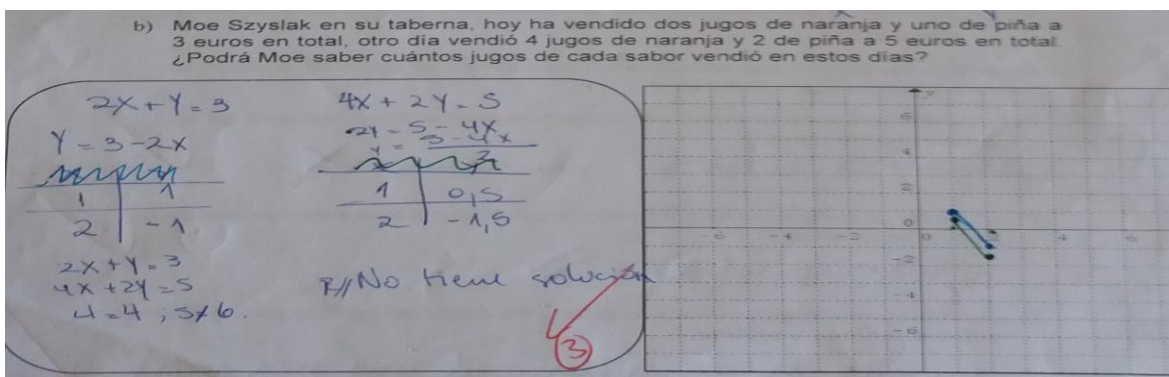 b) Moe Szyslak en su taberna, hoy ha vendido dos jugos de naranja y uno de piña a
3 euros en total, otro día vendió 4 jugos de naranja y 2 de piña a 5 euros en total.
¿Podrá Moe saber cuántos jugos de cada sabor vendió en estos días?
2x + y = 3
y = 3 - 2x
1 | 1
2 | -1
2x + y = 3
4x + 2y = 5
4 = 4 ; 5 ≠ 6.
4x + 2y = 5
2y = 5 - 4x
y = 5 - 4x / 2
1 | 0,5
2 | -1,5
R// No tiene solución
3
y
6
4
2
0
-6 -4 -2 0 2 4 6
-2
-4
-6